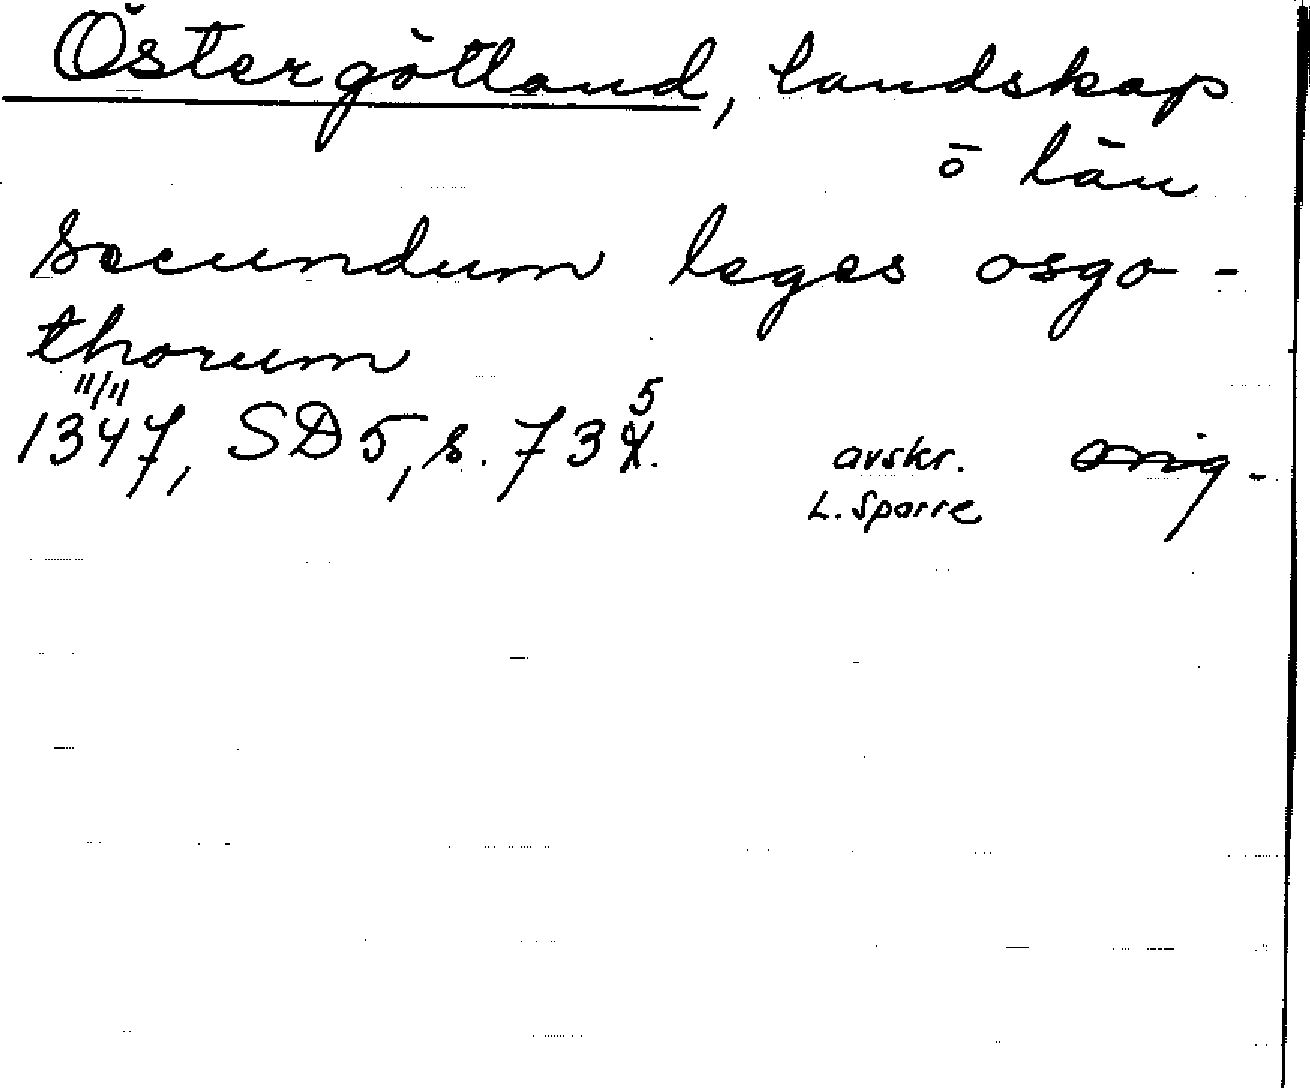 Östergötland, landskap
o län
secundum leges osgo-
thorum
11/11
1347, SD 5, s. 735. avskr. orig.
L. Sparre